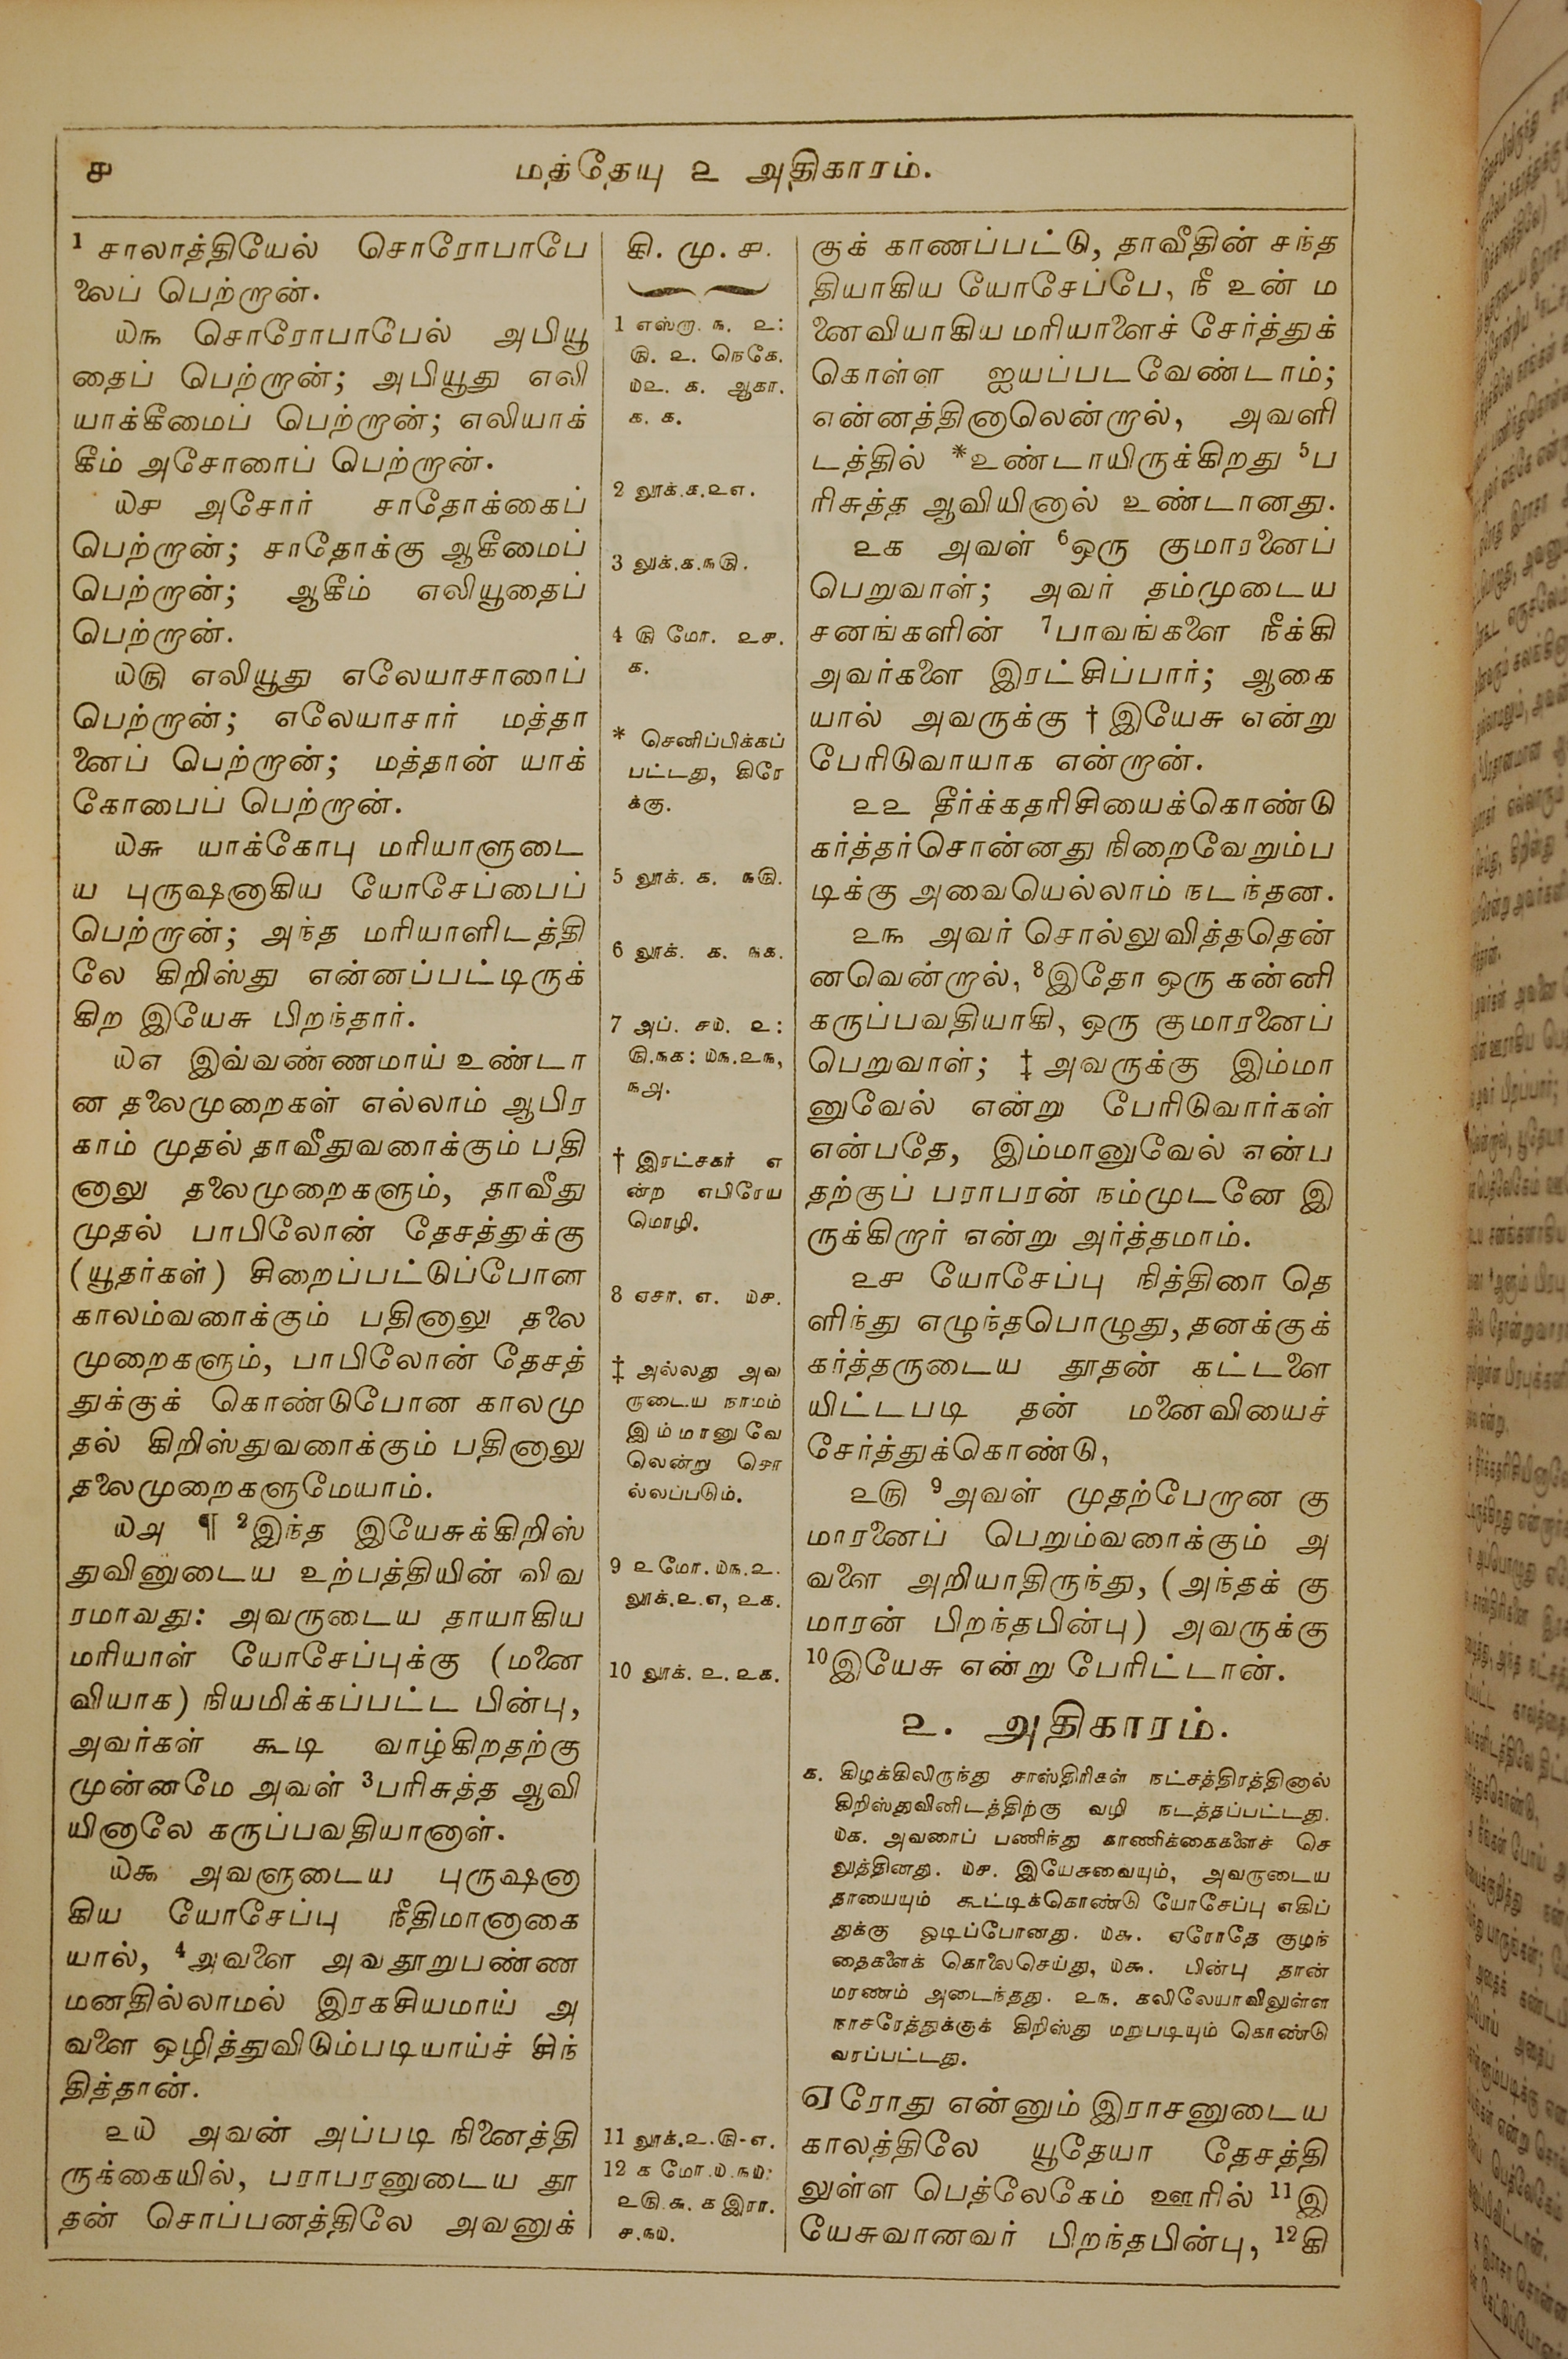 ௪
மத்தேயு ௨ அதிகாரம்.
1 சாலாத்தியேல் சொரோபாபே
லைப் பெற்றான்.
௰௩ சொரோபாபேல் அபியூ
தைப் பெற்றான்; அபியூது எலி
யாக்கீமைப் பெற்றான்; எலியாக்
கீம் அசோரைப் பெற்றான்.
௰௪ அசோர் சாதோக்கைப்
பெற்றான்; சாதோக்கு ஆகீமைப்
பெற்றான்; ஆகீம் எலியூதைப்
பெற்றான்.
௰௫ எலியூது எலேயாசாரைப்
பெற்றான்; எலேயாசார் மத்தா
னைப் பெற்றான்; மத்தான் யாக்
கோபைப் பெற்றான்.
௰௬ யாக்கோபு மரியாளுடை
ய புருஷனாகிய யோசேப்பைப்
பெற்றான்; அந்த மரியாளிடத்தி
லே கிறிஸ்து என்னப்பட்டிருக்
கிற இயேசு பிறந்தார்.
௰௭ இவ்வண்ணமாய் உண்டா
ன தலைமுறைகள் எல்லாம் ஆபிர
காம் முதல் தாவீதுவரைக்கும் பதி
னாலு தலைமுறைகளும், தாவீது
முதல் பாபிலோன் தேசத்துக்கு
(யூதர்கள்) சிறைப்பட்டுப்போன
காலம்வரைக்கும் பதினாலு தலை
முறைகளும், பாபிலோன் தேசத்
துக்குக் கொண்டுபோன காலமு
தல் கிறிஸ்துவரைக்கும் பதினாலு
தலைமுறைகளுமேயாம்.
௰௮ ¶ 2இந்த இயேசுக்கிறிஸ்
துவினுடைய உற்பத்தியின் விவ
ரமாவது: அவருடைய தாயாகிய
மரியாள் யோசேப்புக்கு (மனை
வியாக) நியமிக்கப்பட்ட பின்பு,
அவர்கள் கூடி வாழ்கிறதற்கு
முன்னமே அவள் 3பரிசுத்த ஆவி
யினாலே கருப்பவதியானாள்.
௰௯ அவளுடைய புருஷனா
கிய யோசேப்பு நீதிமானாகை
யால், 4அவளை அவதூறுபண்ண
மனதில்லாமல் இரகசியமாய் அ
வளை ஒழித்துவிடும்படியாய்ச் சிந்
தித்தான்.
௨௰ அவன் அப்படி நினைத்தி
ருக்கையில், பராபரனுடைய தூ
தன் சொப்பனத்திலே அவனுக்
கி. மு. ௪.
1 எஸ்றா. ௩. ௨:
௫. ௨. நெகே.
௰௨. ௧. ஆகா.
௧. ௧.
2 லூக்.௧.௨௭.
3 லூக்.௧.௩௫.
4 ௫ மோ. ௨௪.
௧.
* செனிப்பிக்கப்
பட்டது, கிரே
க்கு.
5 லூக். ௧. ௩௫.
6 லூக். ௧. ௩௧.
7 அப். ௪௰. ௨:
௫.௩௧: ௰௩.௨௩,
௩௮.
† இரட்சகர் எ
ன்ற எபிரேய
மொழி.
8 ஏசா. ௭. ௰௪.
‡ அல்லது அவ
ருடைய நாமம்
இம்மானுவே
லென்று சொ
ல்லப்படும்.
9 ௨ மோ. ௰௩.௨.
லூக்.௨.௭, ௨௧.
10 லூக். ௨. ௨௧.
11 லூக்.௨.௫-௭.
12 ௧ மோ.௰.௩௰:
௨௫.௬. ௧ இரா.
௪.௩௰.
குக் காணப்பட்டு, தாவீதின் சந்த
தியாகிய யோசேப்பே, நீ உன் ம
னைவியாகிய மரியாளைச் சேர்த்துக்
கொள்ள ஐயப்படவேண்டாம்;
என்னத்தினாலென்றால், அவளி
டத்தில் *உண்டாயிருக்கிறது 5ப
ரிசுத்த ஆவியினால் உண்டானது.
௨௧ அவள் 6ஒரு குமாரனைப்
பெறுவாள்; அவர் தம்முடைய
சனங்களின் 7பாவங்களை நீக்கி
அவர்களை இரட்சிப்பார்; ஆகை
யால் அவருக்கு †இயேசு என்று
பேரிடுவாயாக என்றான்.
௨௨ தீர்க்கதரிசியைக்கொண்டு
கர்த்தர்சொன்னது நிறைவேறும்ப
டிக்கு அவையெல்லாம் நடந்தன.
௨௩ அவர் சொல்லுவித்ததென்
னவென்றால், 8இதோ ஒரு கன்னி
கருப்பவதியாகி, ஒரு குமாரனைப்
பெறுவாள்; ‡அவருக்கு இம்மா
னுவேல் என்று பேரிடுவார்கள்
என்பதே, இம்மானுவேல் என்ப
தற்குப் பராபரன் நம்முடனே இ
ருக்கிறார் என்று அர்த்தமாம்.
௨௪ யோசேப்பு நித்திரை தெ
ளிந்து எழுந்தபொழுது, தனக்குக்
கர்த்தருடைய தூதன் கட்டளை
யிட்டபடி தன் மனைவியைச்
சேர்த்துக்கொண்டு,
௨௫ 9அவள் முதற்பேறான கு
மாரனைப் பெறும்வரைக்கும் அ
வளை அறியாதிருந்து, (அந்தக் கு
மாரன் பிறந்தபின்பு) அவருக்கு
10இயேசு என்று பேரிட்டான்.
௨. அதிகாரம்.
௧. கிழக்கிலிருந்து சாஸ்திரிகள் நட்சத்திரத்தினால்
கிறிஸ்துவினிடத்திற்கு வழி நடத்தப்பட்டது.
௰௧. அவரைப் பணிந்து காணிக்கைகளைச் செ
லுத்தினது. ௰௪. இயேசுவையும், அவருடைய
தாயையும் கூட்டிக்கொண்டு யோசேப்பு எகிப்
துக்கு ஓடிப்போனது. ௰௬. ஏரோதே குழந்
தைகளைக் கொலைசெய்து, ௰௯. பின்பு தான்
மரணம் அடைந்தது. ௨௩. கலிலேயாவிலுள்ள
நாசரேத்துக்குக் கிறிஸ்து மறுபடியும் கொண்டு
வரப்பட்டது.
ஏரோது என்னும் இராசனுடைய
காலத்திலே யூதேயா தேசத்தி
லுள்ள பெத்லேகேம் ஊரில் 11இ
யேசுவானவர் பிறந்தபின்பு, 12கி